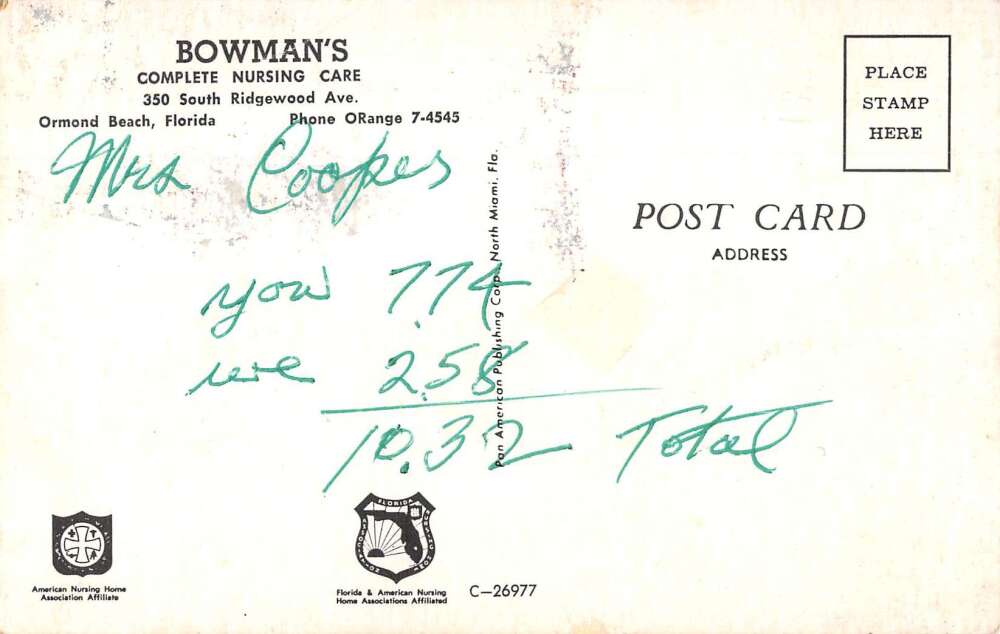 BOWMAN'S
COMPLETE NURSING CARE
350 South Ridgewood Ave.
Ormond Beach, Florida Phone ORange 7-4545
Mrs Cooper
you 7.74
we 2.58
10.32 Total
Pan American Publishing Corp., North Miami, Fla.
PLACE
STAMP
HERE
POST CARD
ADDRESS
American Nursing Home
Association Affiliate
FLORIDA
Florida & American Nursing
Home Associations Affiliated
C-26977